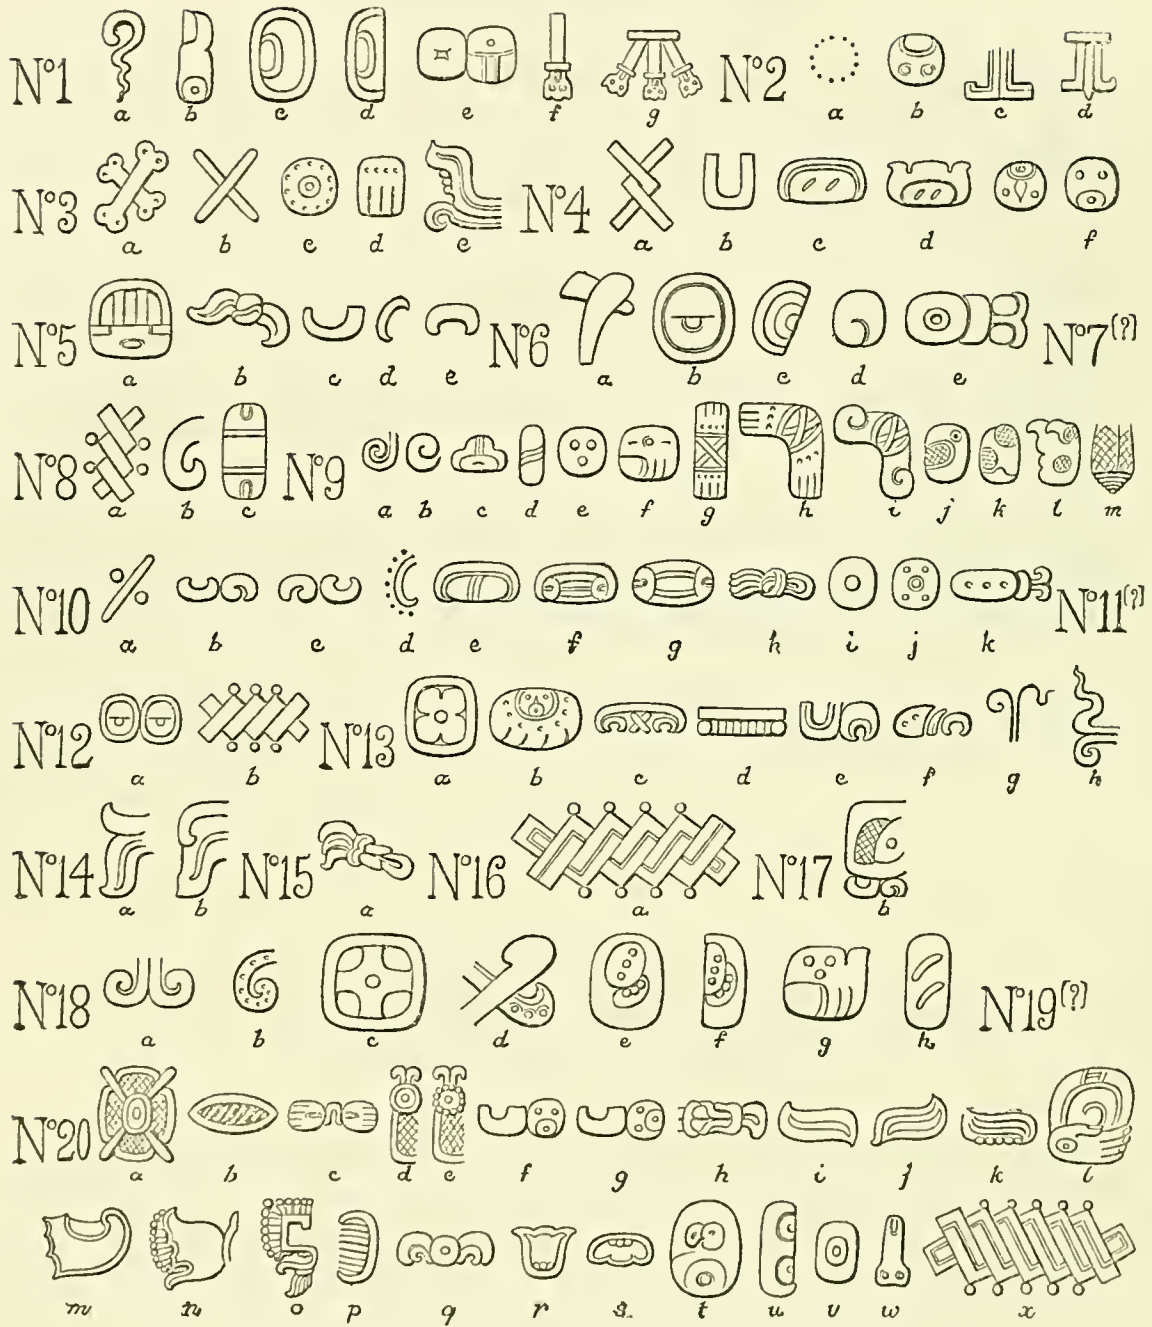 Nº1 a b c d e f g Nº2 a b c d
Nº3 a b c d e Nº4 a b c d f
Nº5 a b c d e Nº6 a b c d e Nº7(?)
Nº8 a b c Nº9 a b c d e f g h i j k l m
Nº10 a b c d e f g h i j k Nº11(?)
Nº12 a b Nº13 a b c d e f g h
Nº14 a b Nº15 a Nº16 a Nº17 b
Nº18 a b c d e f g h Nº19(?)
Nº20 a b c d e f g h i j k l
m n o p q r s t u v w x